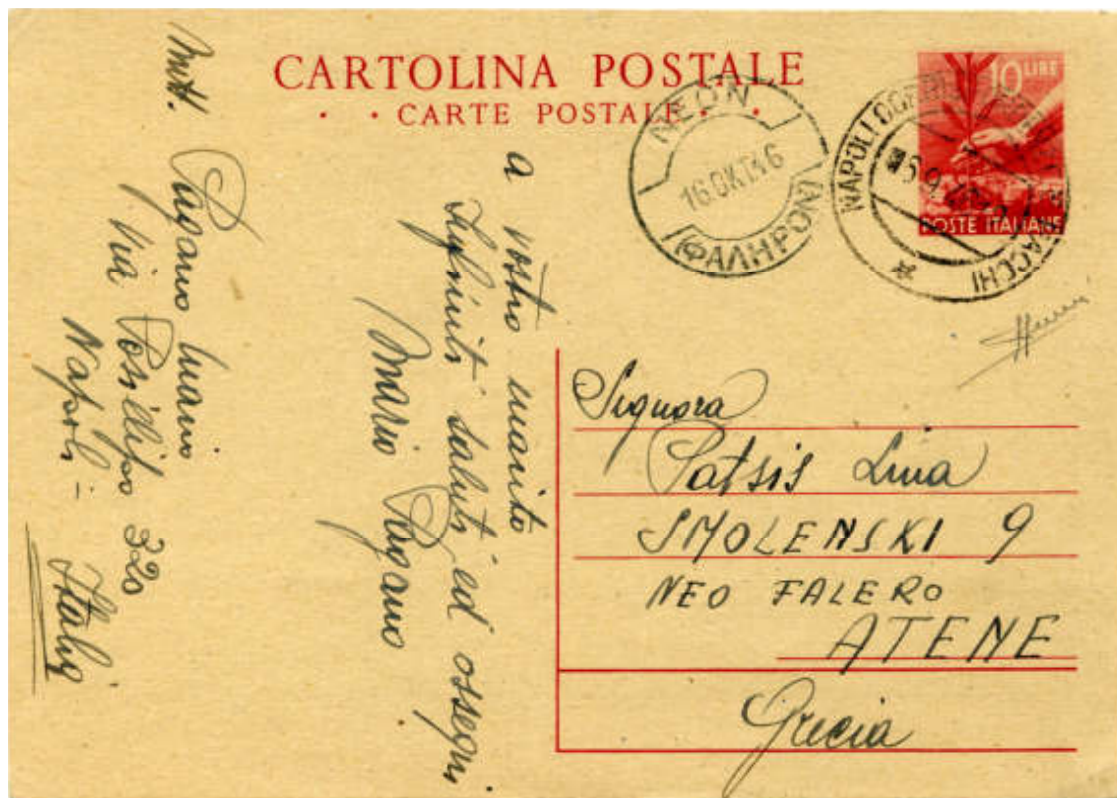 CARTOLINA POSTALE
· · CARTE POSTALE · ·
10 LIRE
POSTE ITALIANE
ΝΕΟΝ
16 ΟΚΤ 46
ΦΑΛΗΡΟΝ
NAPOLI
PACCHI
Mitt. Pagano Mario
Via Posillipo 320
Napoli -
Italia
a vostro marito
Infiniti saluti ed ossequi
Mario Pagano
Signora
Patsis Lina
SMOLENSKI 9
NEO FALERO
ATENE
Grecia